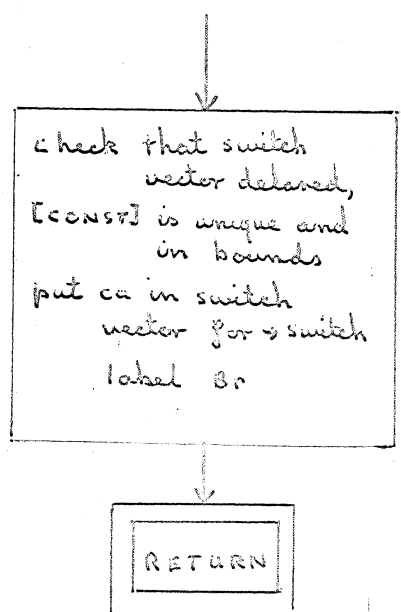 check that switch
vector delared,
[CONST] is unique and
in bounds
put ca in switch
vector for → switch
label Br
RETURN